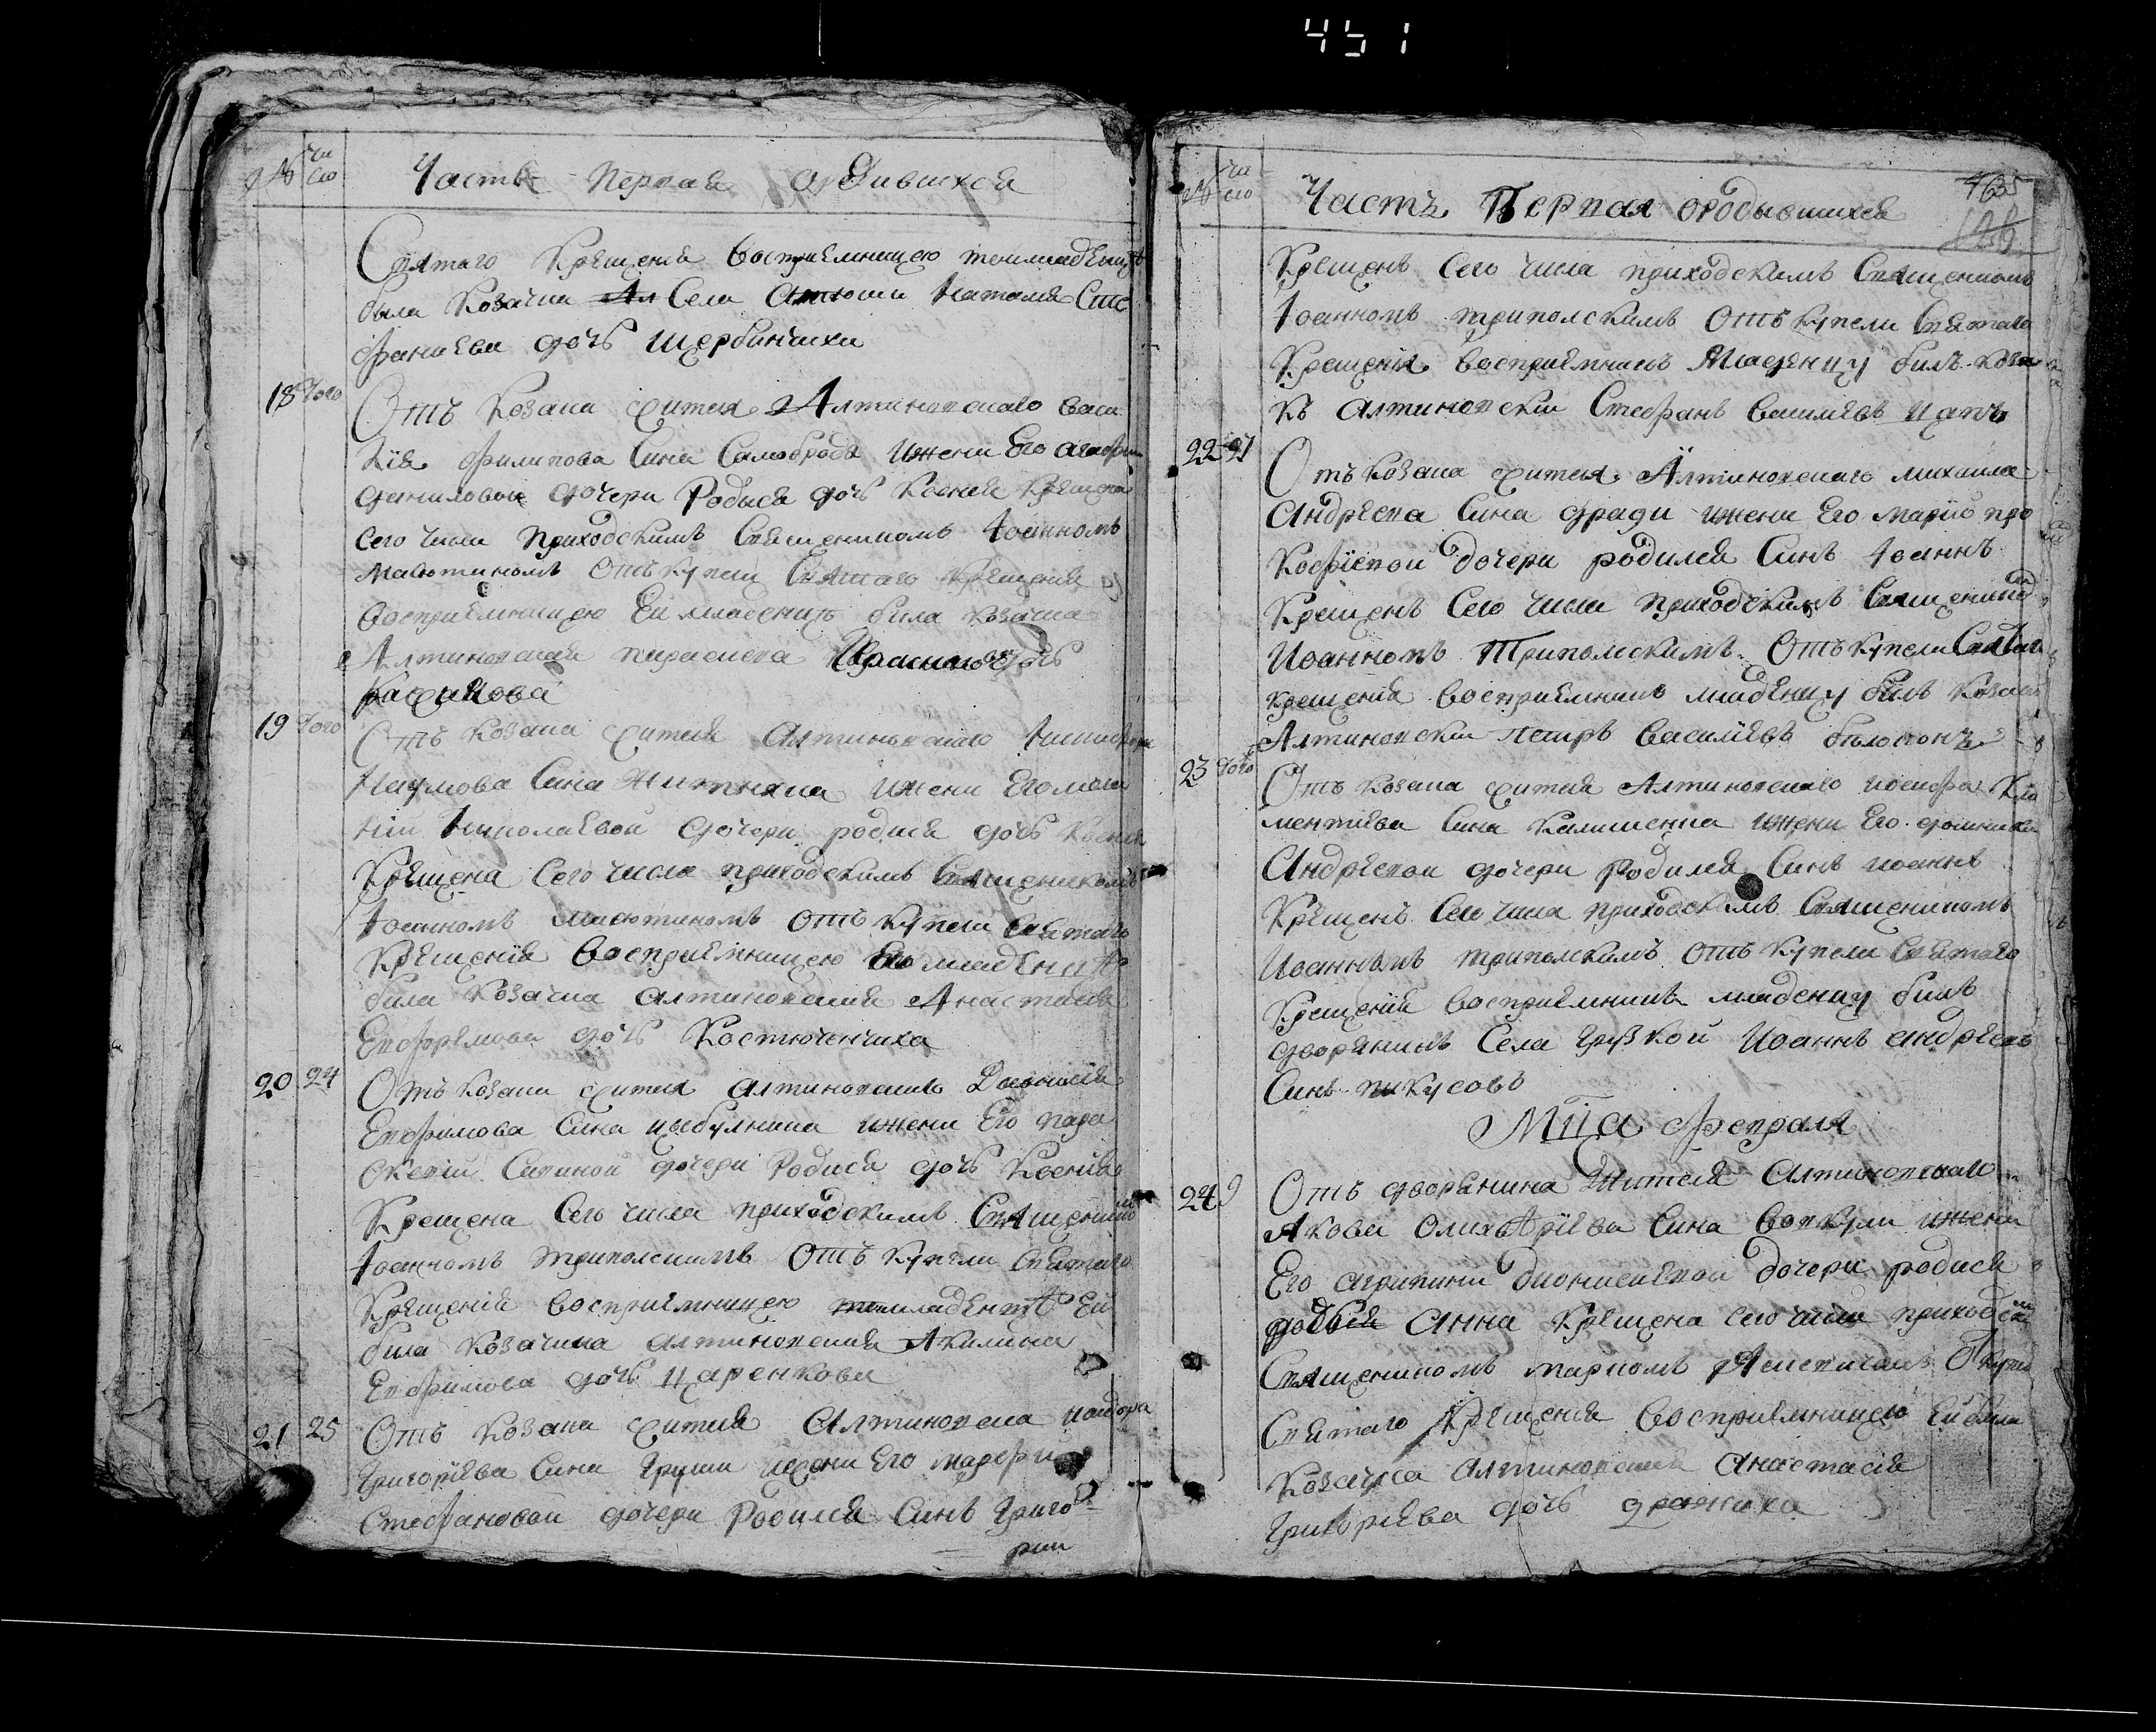 451
№ Чи
сло
Часть Первая ородившихся
Святаго Крещения восприемницею темладенцѣ
была Козачка Ал Села Алтюши Наталя Сте
фаниева дочь Щербинчиха
18 того
Отъ Козака жителя Алтиновскаго Васи
лія Филипова Сина Самоброда ижени Его Агафии
даниловой дочери Родыся дочь Ксенія Крещена
Сего числа Приходскимъ Священикомъ Іоанномъ
Малютиномъ Отъ купели Святаго Крещения
восприемницею Ей младенцѣ била козачка
Алтиновская параскева дочь
19 того
Отъ Козака жителя Алтиновскаго
Наумова Сина Житника ижени Его
Николаевой дочери родися дочь Ксенія
Крещена Сего числа приходскимъ Священикомъ
Іоаномъ Малютиномъ отъ купели Святаго
Крещенія восприемницею Его младенцѣ
била Козачка алтиновския Анастасия
Евфремова дочь Костюченчиха
20 24
Отъ Козака жителя алтиновскаго Дионисія
Евфимова Сина цыбулника ижени Его пара
скевіи Савиной дочери Родися дочь Ксенія
Крещена Сего числа приходскимъ Священико
Іоанномъ триполскимъ Отъ купели Святаго
Крещенія восприемницею младенцѣ Ей
била Козачка алтиновския Акилина
Евфимова дочь царенкова
21 25
Отъ Козака жителя Алтиновска
Григоріева Сина Груши ижени Его
Стефановой дочери Родился Синъ Григо
рии
№ чи
сло
Часть Первая ородывшихся
4635
126
Крещенъ Сего числа приходскимъ Священикомъ
Іоанномъ триполскимъ Отъ купели Святаго
Крещения восприемникъ Младенцу билъ коза
къ алтиновскіи Стефанъ василиевъ цапъ
22 27
Отъ козака жителя Алтиновскаго михаила
Андреева Сина ижени Его Маріи про
кофіевой дочери родился Синъ Іоаннъ
Крещенъ Сего числа приходскимъ Священико
Иоанномъ Триполскимъ Отъ купели Святаго
крещения восприемникъ младенцу билъ козакъ
Алтиновскіи петръ василіевъ
23 того
Отъ козака жителя Алтиновскаго иосифа Кли
ментіева Сина Калишенка ижени Его домники
Андреевои дочери Родился Синъ иоаннъ
Крещенъ Сего числа приходскимъ Священикомъ
Иоанномъ триполскимъ отъ купели Святаго
Крещенія восприемникъ младенцу билъ
дворянинъ Села Грузкой Иоаннъ андреевъ
Синъ пикусовъ
Мца февраля
24 9
Отъ дворянина Жителя Алтиновскаго
Якова Сина ижени
Его агрипини дионисиевои дочери родися
родыся Анна Крещена сего числа приходски
Священикомъ маркомъ купели
Святаго Крещения восприемницею Ей била
Козачка алтиновския Анастасія
Григоріева дочь